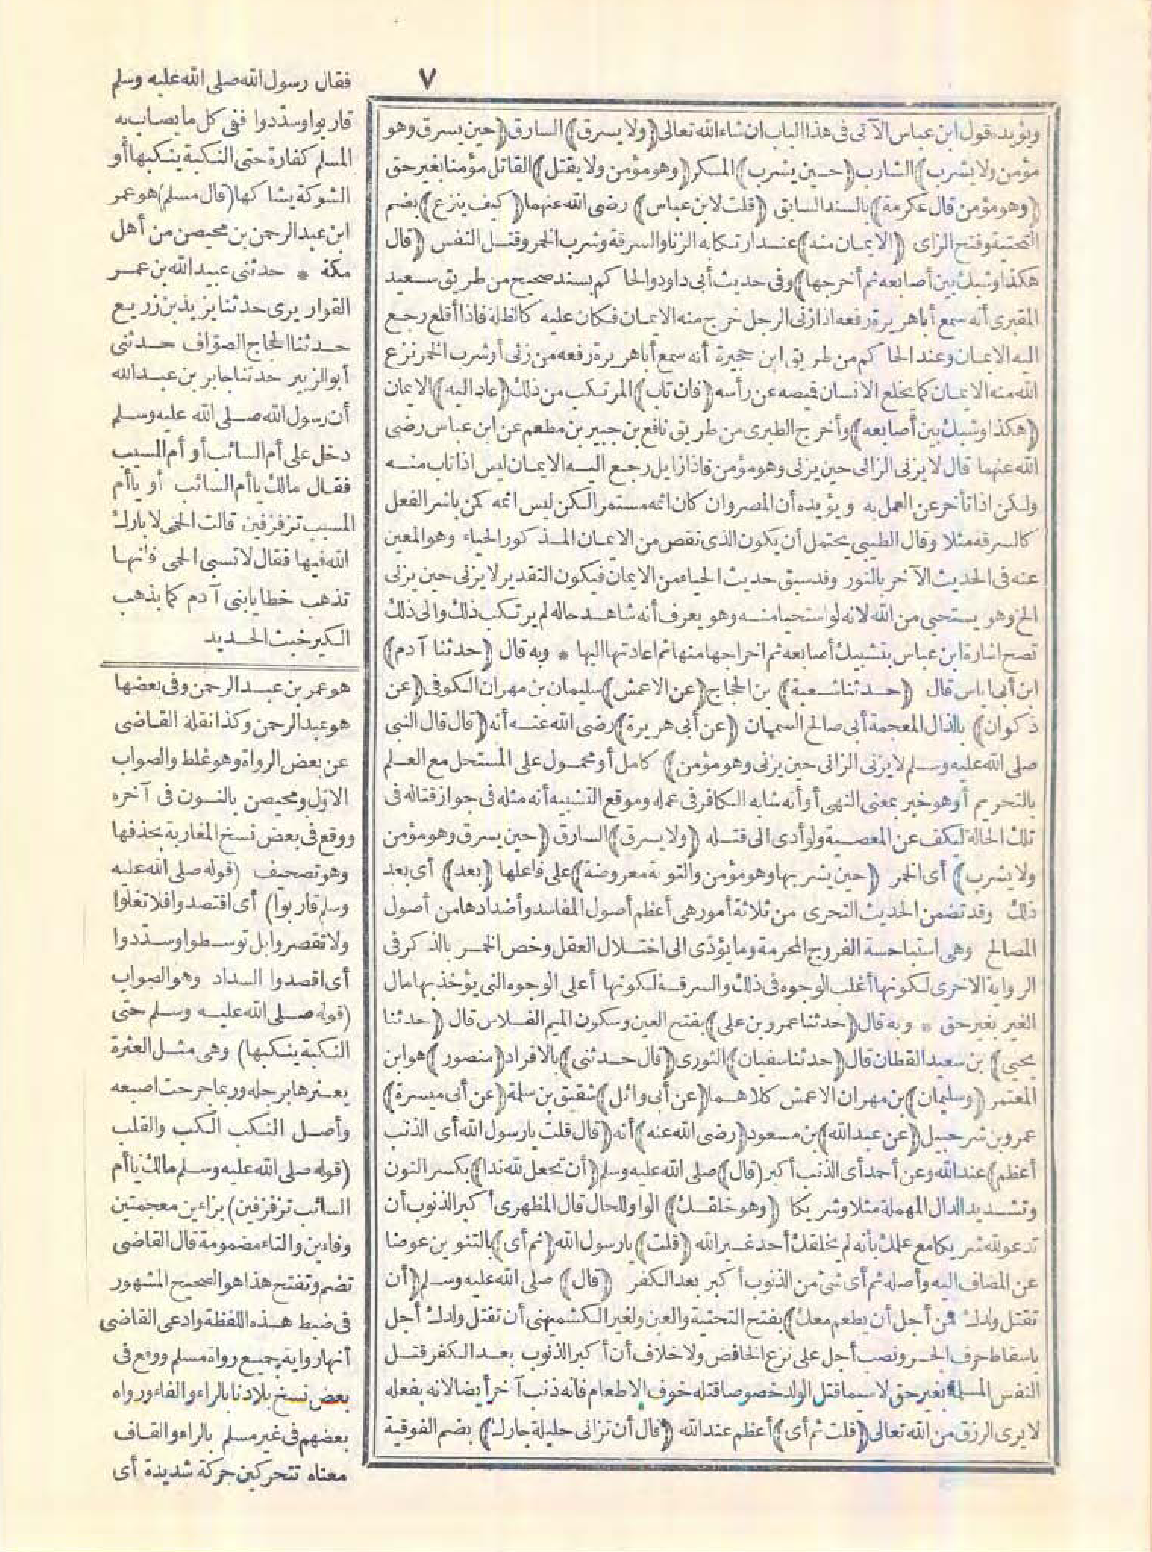 ٧
ويؤيده قول ابن عباس الآتى فى هذا الباب ان شاء الله تعالى (ولا يسرق) السارق (حين يسرق وهو
مؤمن ولا يشرب) الشارب (حين يشرب) المسكر (وهو مؤمن ولا يقتل) القاتل مؤمنا بغير حق
(وهو مؤمن قال عكرمة) بالسند السابق (قلت لابن عباس) رضى الله عنهما (كيف ينزع) بضم
التحتية وفتح الزاى (الايمان منه) عند ارتكابه الزنا والسرقة وشرب الخمر وقتل النفس (قال
هكذا وشبك بين أصابعه ثم أخرجها) وفى حديث أبى داود والحاكم بسند صحيح من طريق سعيد
المقبرى أنه سمع أبا هريرة رفعه اذا زنى الرجل خرج منه الايمان فكان عليه كالظلة فاذا أقلع رجع
اليه الايمان وعند الحاكم من طريق ابن حجيرة أنه سمع أبا هريرة رفعه من زنى أو شرب الخمر نزع
الله منه الايمان كما يخلع الانسان قميصه عن رأسه (فان تاب) المرتكب من ذلك (عاد اليه) الايمان
(هكذا وشبك بين أصابعه) وأخرج الطبرى من طريق نافع بن جبير بن مطعم عن ابن عباس رضى
الله عنهما قال لا يزنى الزانى حين يزنى وهو مؤمن فاذا زايل رجع اليه الايمان ليس اذا تاب منه
ولكن اذا تأخر عن العمل به ويؤيده أن المصر وان كان اثمه مستمرا لكن ليس اثمه كمن باشر الفعل
كالسرقة مثلا وقال الطيبى يحتمل أن يكون الذى نقص من الايمان المذكور الحياء وهو المعبر
عنه فى الحديث الآخر بالنور وقد سبق حديث الحياء من الايمان فيكون التقدير لا يزنى حين يزنى
الخ وهو يستحيى من الله لانه لو استحيا منه وهو يعرف أنه شاهد حاله لم يرتكب ذلك والى ذلك
تصح اشارة ابن عباس بتشبيك أصابعه ثم اخراجها منها ثم اعادتها اليها * وبه قال (حدثنا آدم)
ابن أبى اياس قال (حدثنا شعبة) بن الحجاج (عن الاعمش) سليمان بن مهران الكوفى (عن
ذكوان) بالذال المعجمة أبى صالح السمان (عن أبى هريرة) رضى الله عنه أنه (قال قال النبى
صلى الله عليه وسلم لا يزنى الزانى حين يزنى وهو مؤمن) كامل أو محمول على المستحل مع العلم
بالتحريم أو هو خبر بمعنى النهى أو أنه شابه الكافر فى عمله وموقع التشبيه أنه مثله فى جواز قتاله فى
تلك الحالة ليكف عن المعصية ولو أدى الى قتله (ولا يسرق) السارق (حين يسرق وهو مؤمن
ولا يشرب) أى الخمر (حين يشربها وهو مؤمن والتوبة معروضة) على فاعلها (بعد) أى بعد
ذلك وقد تضمن الحديث التحرى من ثلاثة أمور هى أعظم أصول المفاسد وأضدادها من أصول
المصالح وهى استباحة الفروج المحرمة وما يؤدّى الى اختلال العقل وخص الخمر بالذكر فى
الرواية الاخرى لكونها أغلب الوجوه فى ذلك والسرقة لكونها أعلى الوجوه التى يؤخذ بها مال
الغير بغير حق * وبه قال (حدثنا عمرو بن على) بفتح العين وسكون الميم الفلاس قال (حدثنا
يحيى) بن سعيد القطان قال (حدثنا سفيان) الثورى (قال حدثنى) بالافراد (منصور) هو ابن
المعتمر (وسليمان) بن مهران الاعمش كلاهما (عن أبى وائل) شقيق بن سلمة (عن أبى ميسرة)
عمرو بن شرحبيل (عن عبد الله) بن مسعود (رضى الله عنه) أنه (قال قلت يا رسول الله أى الذنب
أعظم) عند الله وعن أحمد أى الذنب أكبر (قال) صلى الله عليه وسلم (أن تجعل لله ندا) بكسر النون
وتشديد الدال المهملة مثلا وشريكا (وهو خلقك) الواو للحال قال المظهرى أكبر الذنوب أن
تدعو لله شريكا مع علمك بأنه لم يخلقك أحد غير الله (قلت) يا رسول الله (ثم أى) بالتنوين عوضا
عن المضاف اليه وأصله ثم أى شئ من الذنوب أكبر بعد الكفر (قال) صلى الله عليه وسلم (أن
تقتل ولدك من أجل أن يطعم معك) بفتح التحتية والعين ولغير الكشميهنى أن تقتل ولدك أجل
باسقاط حرف الجر ونصب أجل على نزع الخافض ولا خلاف أن أكبر الذنوب بعد الكفر قتل
النفس المسلمة بغير حق لا سيما قتل الولد خصوصا قتله خوف الاطعام فانه ذنب آخر أيضا لانه بفعله
لا يرى الرزق من الله تعالى (قلت ثم أى) أعظم عند الله (قال أن تزانى حليلة جارك) بضم الفوقية
فقال رسول الله صلى الله عليه وسلم
قاربوا وسدّدوا ففى كل ما يصاب به
المسلم كفارة حتى النكبة ينكبها أو
الشوكة يشاكها (قال مسلم) هو عمر
ابن عبد الرحمن بن محيصن من أهل
مكة * حدثنى عبيد الله بن عمر
القواريرى حدثنا يزيد بن زريع
حدثنا الحجاج الصوّاف حدثنى
أبو الزبير حدثنا جابر بن عبد الله
أن رسول الله صلى الله عليه وسلم
دخل على أم السائب أو أم المسيب
فقال مالك يا أم السائب أو يا أم
المسيب تزفزفين قالت الحمى لا بارك
الله فيها فقال لا تسبى الحمى فانها
تذهب خطايا بنى آدم كما يذهب
الكير خبث الحديد
هو عمر بن عبد الرحمن وفى بعضها
هو عبد الرحمن وكذا نقله القاضى
عن بعض الرواة وهو غلط والصواب
الاول ومحيصن بالنون فى آخره
ووقع فى بعض نسخ المغاربة بحذفها
وهو تصحيف (قوله صلى الله عليه
وسلم قاربوا) أى اقتصدوا فلا تغلوا
ولا تقصروا بل توسطوا وسدّدوا
أى اقصدوا السداد وهو الصواب
(قوله صلى الله عليه وسلم حتى
النكبة ينكبها) وهى مثل العثرة
يعثرها برجله وربما جرحت اصبعه
وأصل النكب الكب والقلب
(قوله صلى الله عليه وسلم مالك يا أم
السائب تزفزفين) بزاءين معجمتين
وفاءين والتاء مضمومة قال القاضى
تضم وتفتح هذا هو الصحيح المشهور
فى ضبط هذه اللفظة وادعى القاضى
أنها رواية جميع رواة مسلم ووقع فى
بعض نسخ بلادنا بالراء والفاء ورواه
بعضهم فى غير مسلم بالراء والقاف
معناه تتحركين حركة شديدة أى